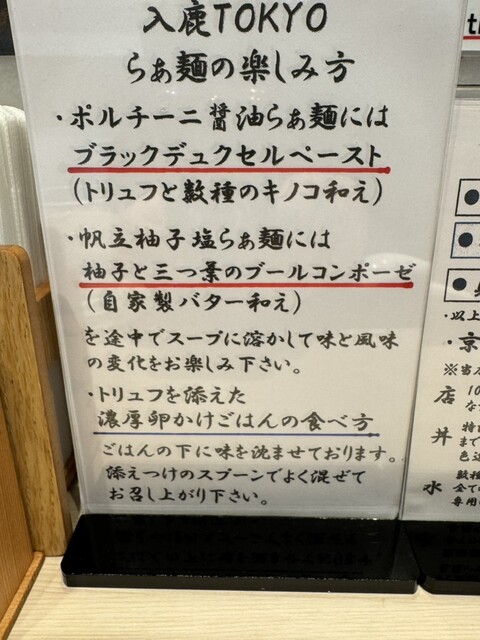 入鹿TOKYO
らぁ麺の楽しみ方
・ポルチーニ醤油らぁ麺には
ブラックデュクセルペースト
(トリュフと数種のキノコ和え)
・帆立柚子塩らぁ麺には
柚子と三つ葉のブールコンポーゼ
(自家製バター和え)
を途中でスープに溶かして味と風味
の変化をお楽しみ下さい。
・トリュフを添えた
濃厚卵かけごはんの食べ方
ごはんの下に味を沈ませております。
添えつけのスプーンでよく混ぜて
お召し上がり下さい。
・以上
・京
※当店
10
な
丼
特
まで
色
水
数種
全ての
専用